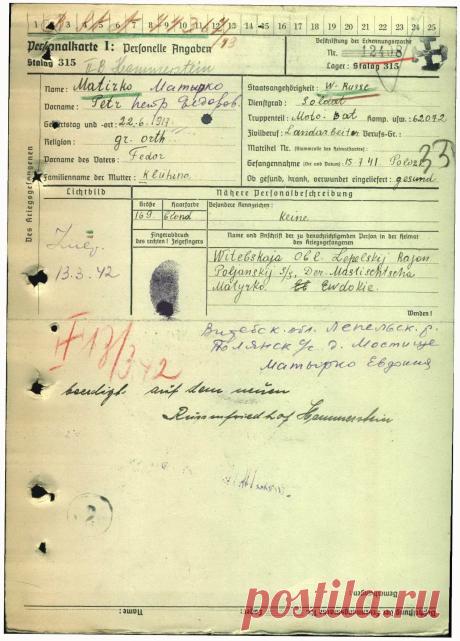 1 2 3 4 5 6 7 8 9 10 11 12 13 14 15 16 17 18 19 20 21 22 23 24 25
Personalkarte I: Personelle Angaben
Beschriftung der Erkennungsmarke
Nr. 12408
Stalag 315
II B Hammerstein
Lager: Stalag 315
Des Kriegsgefangenen
Name: Matirko Матырко
Staatsangehörigkeit: W-Russe
Vorname: Petr Петр Федоров.
Dienstgrad: Soldat
Truppenteil: Moto-Bat Komp. usw. 62072
Geburtstag und -ort: 22.6.1917
Zivilberuf: Landarbeiter Berufs-Gr.
Religion: gr. orth.
Matrikel Nr. (Stammrolle des Heimatstaates)
Vorname des Vaters: Fedor
Gefangennahme (Ort und Datum) 15.7.41 Polozk
Familienname der Mutter:
Ob gesund, krank, verwundet eingeliefert: gesund
35
Lichtbild
Nähere Personalbeschreibung
Größe Haarfarbe Besondere Kennzeichen:
169 blond keine
Fingerabdruck des rechten ! Zeigefingers
Name und Anschrift der zu benachrichtigenden Person in der Heimat des Kriegsgefangenen
13.3.42
Witebskaja Obl. Lepelskij Rajon
Poljanskij S/s, Der. Mostischtscha
Matyrko Ewdokie.
Wenden!
Витебск. обл. Лепельск. р.
Полянск с/с д. Мостище
Матырко Евдокия
13/3 42
beerdigt auf dem neuen
Russenfriedhof Hammerstein
2
Bemerkungen:
Name:
postila.ru